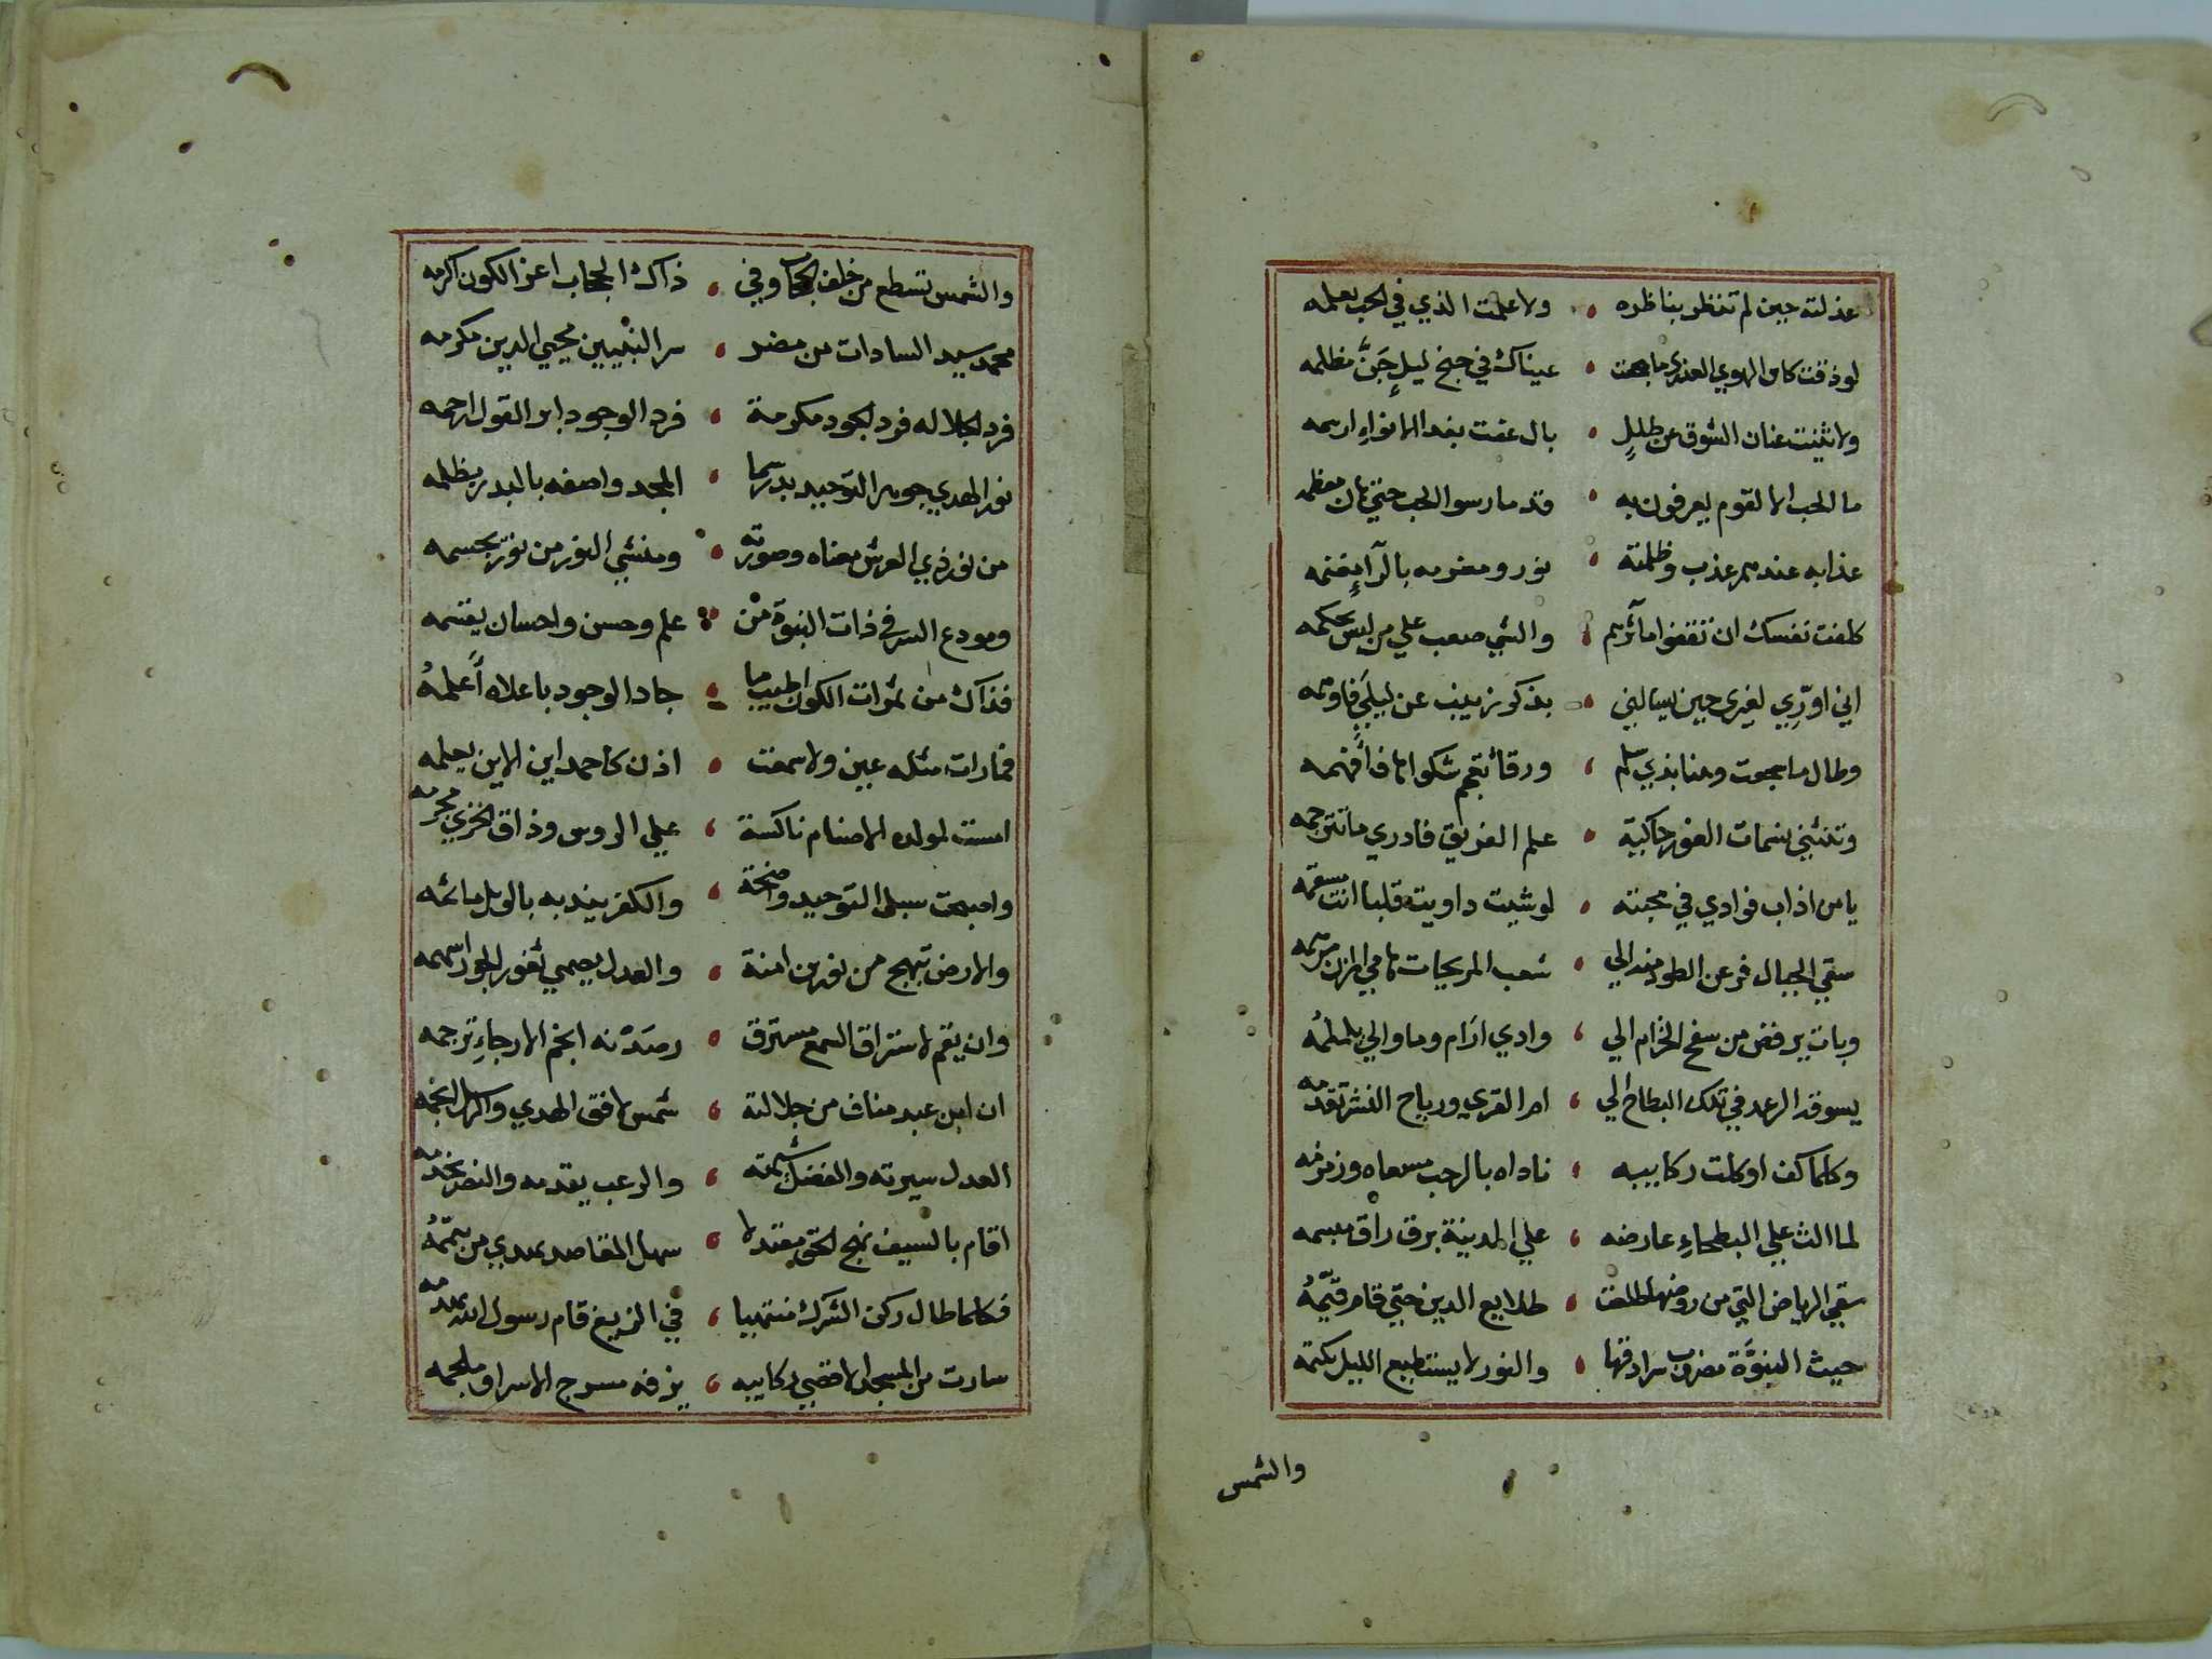 عذلته حين لم تنظر بناظره ولا علمت الذي في الحب يعلمه
لو ذقت كاس الهوي العذري ما هجعت عيناك في جنح ليلٍ جَنَّ مظلمه
ولا ثنيت عنان الشوق عن طللٍ بال عفت بيد الانواءِ ارسمه
ما الحب الا لقوم يعرفون به قد مارسوا الحب حتي هان معظمه
عذابه عندهم عذب وظلمته نور ومغرمه بالرآءِ مغنمه
كلفت نفسك ان تقفوا مآثرهم والشي صعب علي من ليس يحكمه
اني اورّي لغيري حين يسالني بذكر زينب عن ليلي فاوهمه
وطال ما سجعت وهنا بذي سلم ورقا تعجم شكواها فافهمه
وتنثني نسمات الغور حاكية علم الفريق فادري ما تترجمه
يا من اذاب فوادي في محبته لو شيت داويت قلبا انت مسقمه
سقي الجبال فرعن الطود منه الي شعب المريحات هامي المزن مرهمه
وبات يرفض من سفح الخزام الي وادي ارام وما والي يلملمُه
يسوقه الرعد في تلك البطاح الي ام القري ورياح النشر تقدمه
وكلما كف او كلت ركاييبه ناداه بالرحب مسعاه وزمزمه
لما الث علي البطحاءِ عارضه علي المدينة برق راق مبسمه
سقي الرياض التي من روضها طلعت طلايع الدين حتي قام قيّمُه
حيث النبوّة مضروب سرادقها والنور لا يستطيع الليل يكتمه
والشمس
والشمس تسطع من خلف الحجاب وفي ذاك الحجاب اعز الكون اكرمه
محمد سيد السادات من مضر سر النبيين محيي الدين مكرمه
فرد الجلاله فرد الجود مكرمة فرد الوجود ابر القول ارحمه
نور الهدي جوهر التوحيد بدر سما المجد واصفه بالبدر يظلمه
من نور ذي العرش معناه وصورته ومنشي النور من نور يجسمه
ومودع السر في ذات النبوة من علم وحسن واحسان يقسمه
فذاك من ثمرات الكون اطيب ما جاد الوجود باعلاه أعلمهُ
فما رات مثله عين ولا سمعت اذن كاحمد اين الاين يعلمه
امست لمولده الاصنام ناكسة علي الروس وذاق الخزي مجرمه
واصبحت سبل التوحيد واضحة والكفر يندبه بالويل ماتمه
والارض تبهج من نور بن امنة والعدل يحمي ثغور الجور اسهمه
وان يقم لاستراق السمع مسترق رصَدْنه انجم الارجاءِ ترجمه
ان ابن عبد مناف من جلالته شمس لافق الهدي والرسل انجمه
العدل سيرته والفضل شيمته والرعب يقدمه والنصر يخدمه
اقام بالسيف نهج الحق معتدلا سهل المقاصد يهدي من ييمّمُه
فكلما طال ركن الشرك منتهيا في الزيغ قام رسول الله يهدمه
سارت من المسجد الاقصي ركاييبه يزفه مسرج الاسرا وملجمه